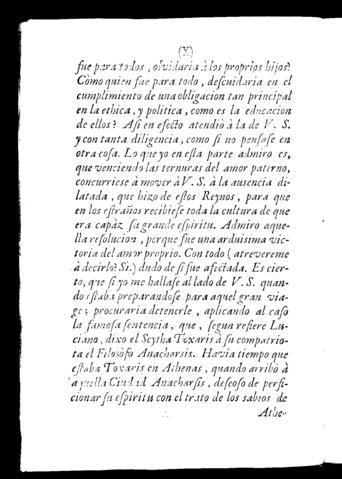 (X)
fue para todos, olvidaria à los proprios hijos?
Como quien fue para todo, descuidaria en el
cumplimiento de una obligacion tan principal
en la ethica, y politica, como es la educacion
de ellos? Asi en efecto atendiò à la de V. S.
y con tanta diligencia, como si no pensase en
otra cosa. Lo que yo en esta parte admiro es,
que venciendo las ternuras del amor paterno,
concurriese à mover à V. S. à la ausencia di-
latada, que hizo de estos Reynos, para que
en los estraños recibiese toda la cultura de que
era capàz su grande espiritu. Admiro aque-
lla resolucion, porque fue una arduisima vic-
toria del amor proprio. Con todo (atrevereme
à decirlo? Sì.) dudo de si fue afectada. Es cier-
to, que si yo me hallase al lado de V. S. quan-
do estaba preparandose para aquel gran via-
ge; procuraria detenerle, aplicando al caso
la famosa sentencia, que, segun refiere Lu-
ciano, dixo el Scytha Toxaris à su compatrio-
ta el Filosofo Anacharsis. Havia tiempo que
estaba Toxaris en Athenas, quando arribò à
aquella Ciudad Anacharsis, deseoso de perfi-
cionar su espiritu con el trato de los sabios de
Athe-